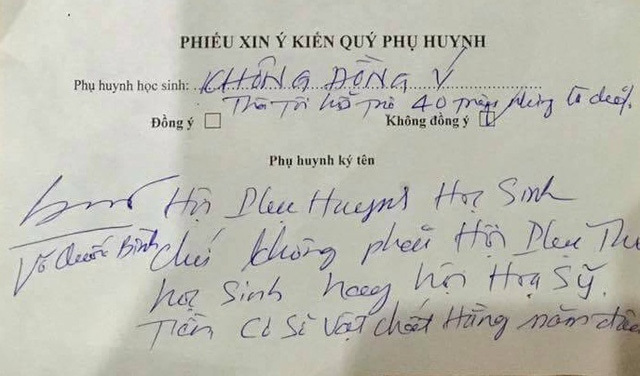 PHIẾU XIN Ý KIẾN QUÝ PHỤ HUYNH
Phụ huynh học sinh: KHÔNG ĐỒNG Ý
Tôi hỗ trợ 40
Đồng ý ☐ Không đồng ý ☑
Phụ huynh ký tên
Võ Quốc Bình
Hội Phụ Huynh Học Sinh
chứ không phải Hội Phụ Thu
học Sinh hay hội Hoạ Sỹ.
Tiền Cơ Sở Vật chất Hằng năm đâu